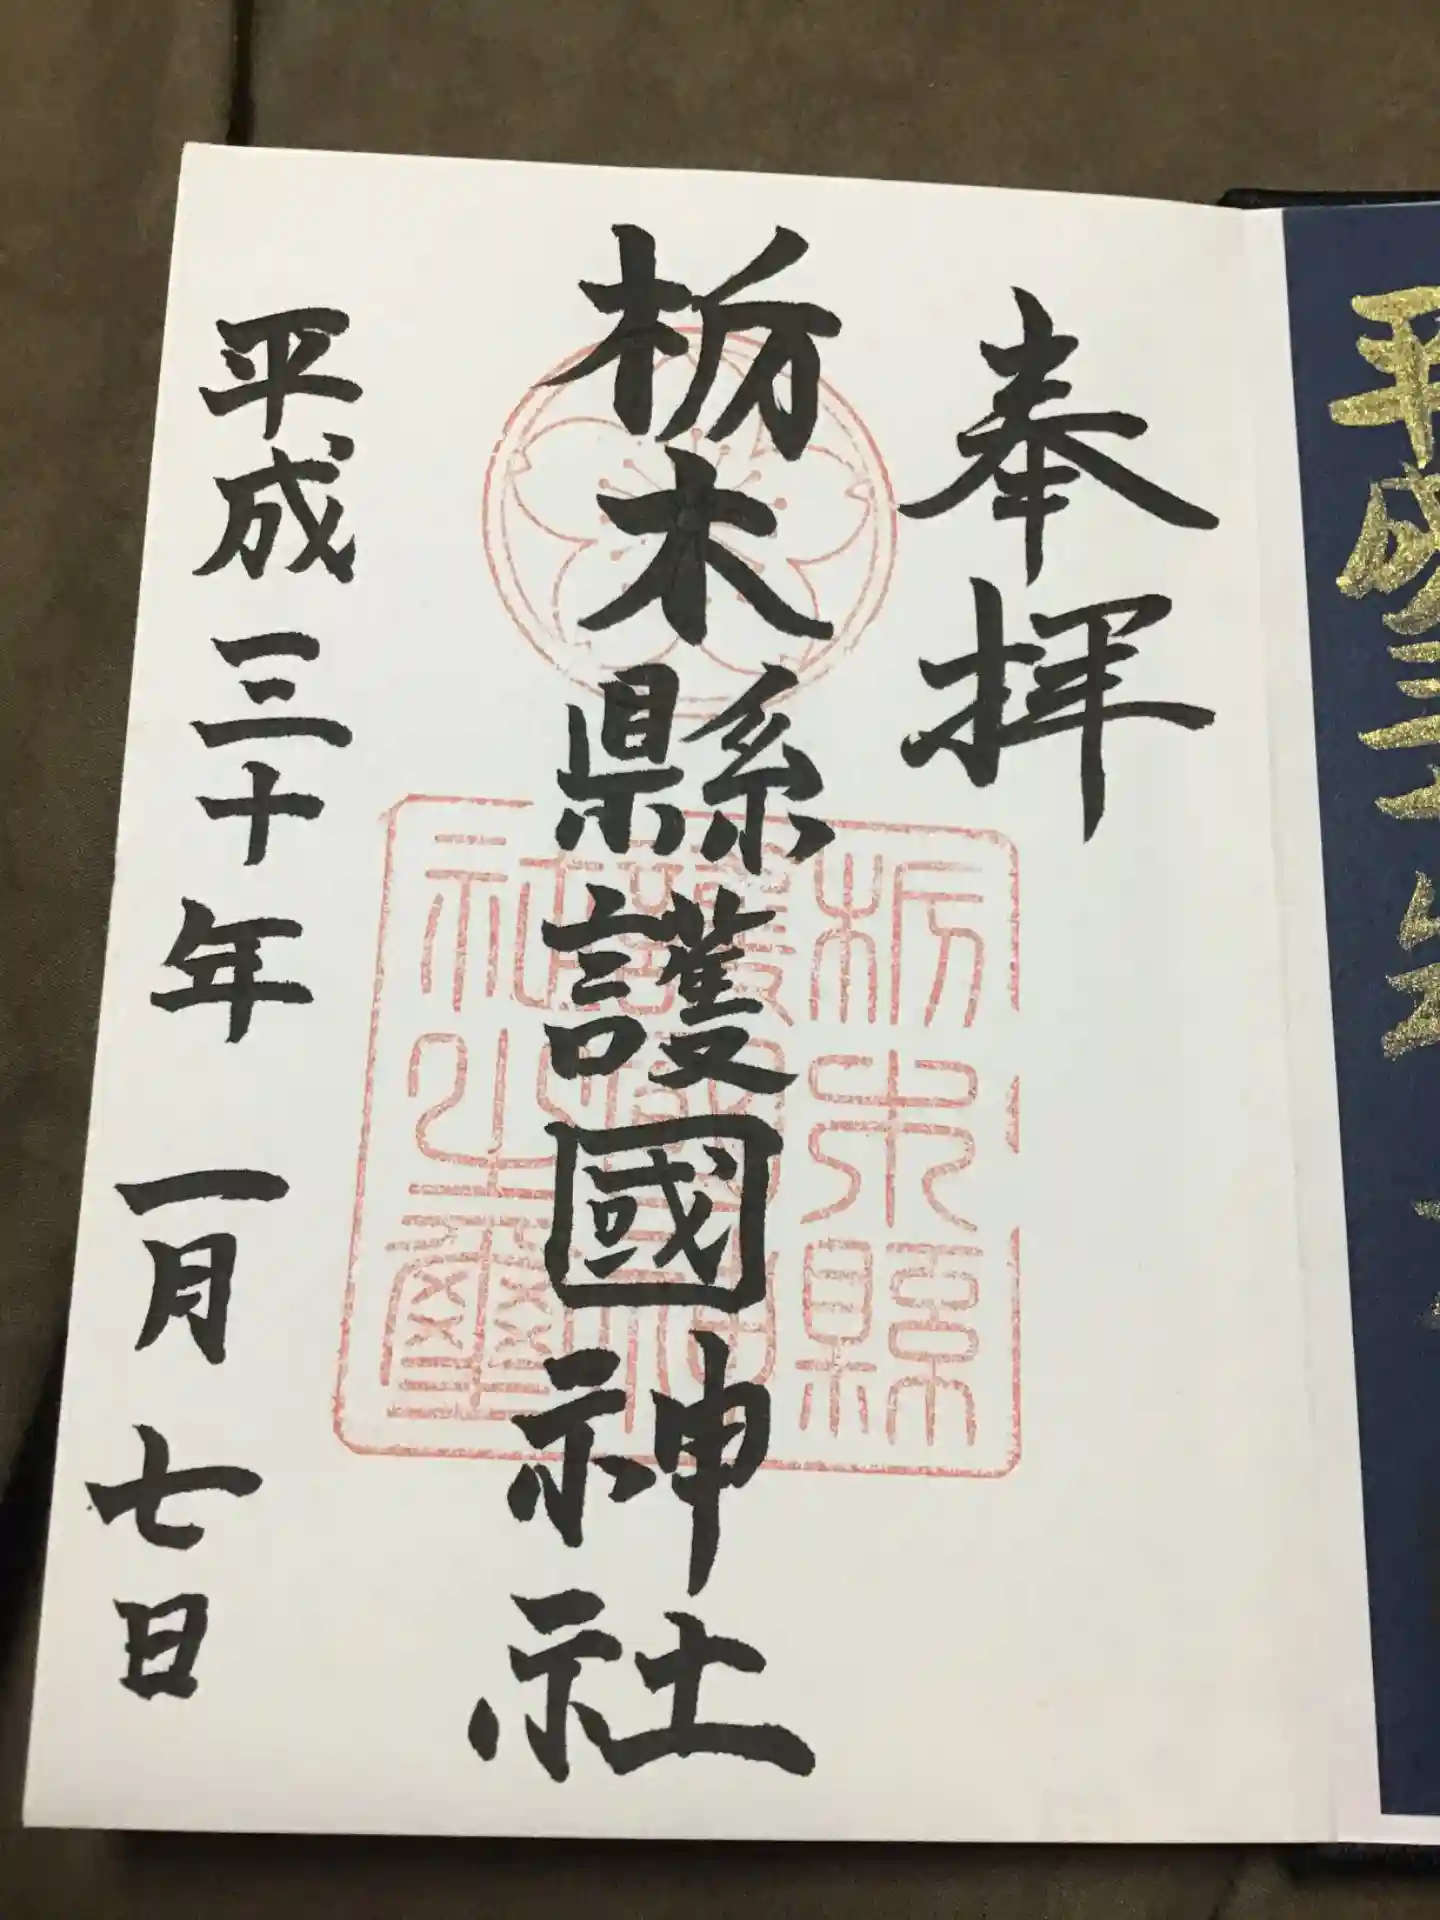 平成三十年
奉拝
栃木縣護國神社
平成三十年一月七日
栃木縣
護國神
社之璽